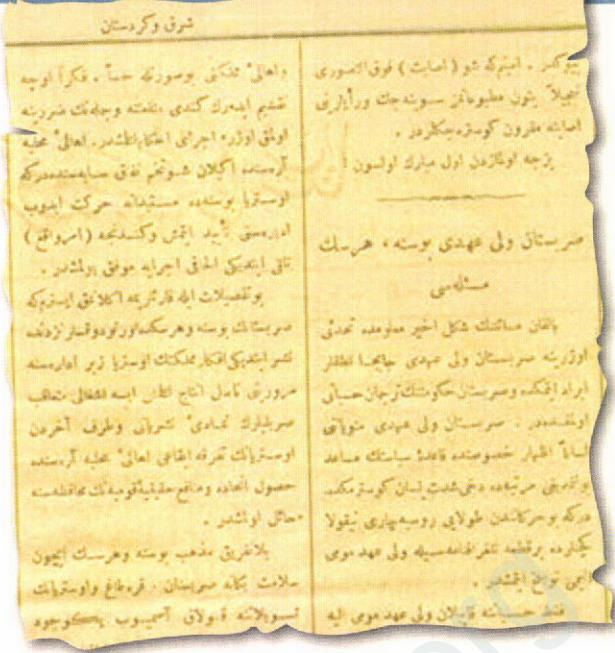 شرق وكردستان
اصابته مقرون كوستره‌جكلردر .
بزجه اونلردن اول مبارك اولسون !
صربستان ولی عهدی بوسنه ، هرسك
مسئله‌سی
بالقان مسائلنك شكل اخير معلومده تحدثی
اوزرينه صربستان ولی عهدی جابجا نطقلر
ايراد ايتمكده وصربستان حكومتنك ترجمان حسياتی
اولمقده‌در . صربستان ولی عهدی منوياتی
لساناً اظهار خصوصنده قاعدهٔ سياستك مساعد
مرتبه‌ده دخی شدت لسان كوسترمكده
دركه بو حركاتندن طولايی روسيه چاری نيقولا
برقطعه تلغرافنامه‌سيله ولی عهد مومی
اليهی توبيخ ايتمشدر .
فقط حسياتنه قاپيلان ولی عهد مومی اليه
واهالیٔ بوصورتله حساً ، فكراً اوچه
تقسيم ايده‌رك كندی منفعتنه وجمله‌نك ضررينه
اولمق اوزره اجرای احكام ايتمشدر . اهالیٔ محليه
آره‌سنده اكيلان شو تخم نفاق سايه‌سنده‌دركه
اوستريا بوسنه‌ده مستبدانه حركت ايدوب
اداره‌سنی تأييد ايتمش وكندنجه ( امر واقع )
ايتديكی الحاقی اجرايه موفق اولمشدر .
بو تفصيلات ايله قارئلريمه اكلاتمق ايسترم‌كه
صربستانك بوسنه وهرسكده اورتودوقسلر نزدنده
نشر ايتديكی افكار مملكتك اوستريا زير اداره‌سنه
مرورينی انتاج ايتديكی اشغالی متعاقب
صربليلرك تمادیٔ نشرياتی وطرف آخردن
اوستريانك تفرقه القاسی اهالیٔ محليه آره‌سنده
حصول اتحاده ومنافع حقيقيهٔ قوميه‌نك محافظه‌سنه
حائل اولمشدر .
بلاتفريق مذهب بوسنه وهرسك ايچون
سلامت يكانه صربستان ، قره‌طاغ واوستريانك
تسويلاتنه قولاق آصميوب يكوجود